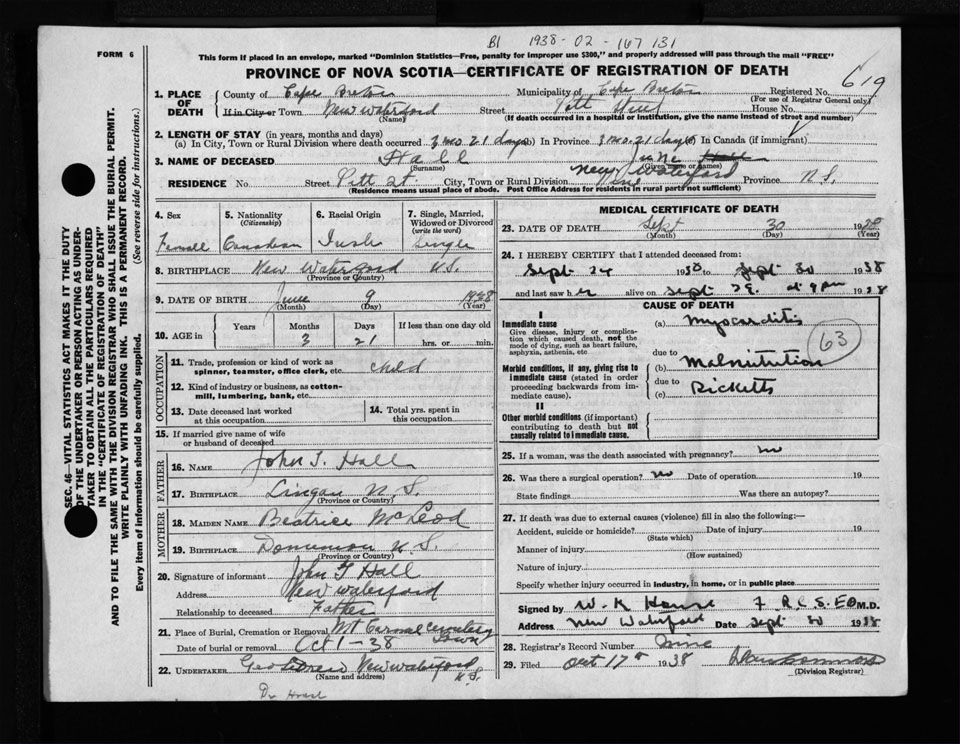 B1 1938-02-167 131
FORM 6
This form if placed in an envelope, marked "Dominion Statistics—Free, penalty for improper use $300," and properly addressed will pass through the mail "FREE"
PROVINCE OF NOVA SCOTIA—CERTIFICATE OF REGISTRATION OF DEATH
619
SEC. 46—VITAL STATISTICS ACT MAKES IT THE DUTY
OF THE UNDERTAKER OR PERSON ACTING AS UNDER-
TAKER TO OBTAIN ALL THE PARTICULARS REQUIRED
IN THE "CERTIFICATE OF REGISTRATION OF DEATH"
AND TO FILE THE SAME WITH THE DIVISION REGISTRAR WHO SHALL ISSUE THE BURIAL PERMIT.
WRITE PLAINLY WITH UNFADING INK. THIS IS A PERMANENT RECORD.
Every item of information should be carefully supplied. (See reverse side for instructions.)
1. PLACE OF DEATH
County of Cape Breton Municipality of Cape Breton Registered No.
(For use of Registrar General only)
If in City or Town New Waterford Street Pitt Street House No.
(Name) (If death occurred in a hospital or institution, give the name instead of street and number)
2. LENGTH OF STAY (in years, months and days)
(a) In City, Town or Rural Division where death occurred 3 mo. 21 days (b) In Province 3 mo. 21 days (c) In Canada (if immigrant)
3. NAME OF DECEASED Hall June Hall
(Surname) (Given name or names)
RESIDENCE No. Street Pitt St. City, Town or Rural Division New Waterford Province N.S.
(Residence means usual place of abode. Post Office Address for residents in rural parts not sufficient)
4. Sex 5. Nationality (Citizenship) 6. Racial Origin 7. Single, Married, Widowed or Divorced (write the word)
Female Canadian Irish Single
8. BIRTHPLACE New Waterford N.S.
(Province or Country)
9. DATE OF BIRTH June 9 1938
(Month) (Day) (Year)
10. AGE in Years Months Days If less than one day old
3 21 hrs. or min.
OCCUPATION
11. Trade, profession or kind of work as
spinner, teamster, office clerk, etc. child
12. Kind of industry or business, as cotton-
mill, lumbering, bank, etc.
13. Date deceased last worked
at this occupation
14. Total yrs. spent in
this occupation
15. If married give name of wife
or husband of deceased
FATHER
16. NAME John J. Hall
17. BIRTHPLACE Lingan N.S.
(Province or Country)
MOTHER
18. MAIDEN NAME Beatrice McLeod
19. BIRTHPLACE Dominion N.S.
(Province or Country)
20. Signature of informant John J Hall
Address New Waterford
Relationship to deceased Father
21. Place of Burial, Cremation or Removal Mt Carmel Cemetery Town
Date of burial or removal Oct 1-38
22. UNDERTAKER New Waterford N.S.
(Name and address)
MEDICAL CERTIFICATE OF DEATH
23. DATE OF DEATH Sept 30 1938
(Month) (Day) (Year)
24. I HEREBY CERTIFY that I attended deceased from:
Sept 24 1938 to Sept 30 1938
and last saw her alive on Sept 29. at 9 pm 1938
CAUSE OF DEATH
I
Immediate cause
Give disease, injury or complica-
tion which caused death, not the
mode of dying, such as heart failure,
asphyxia, asthenia, etc
(a) Myocarditis
63
due to
Morbid conditions, if any, giving rise to
immediate cause (stated in order
proceeding backwards from im-
mediate cause).
(b) Malnutrition
due to
(c) Ricketts
II
Other morbid conditions (if important)
contributing to death but not
causally related to immediate cause.
25. If a woman, was the death associated with pregnancy? no
26. Was there a surgical operation? no Date of operation 19
State findings Was there an autopsy?
27. If death was due to external causes (violence) fill in also the following:—
Accident, suicide or homicide? Date of injury 19
(State which)
Manner of injury
(How sustained)
Nature of injury
Specify whether injury occurred in industry, in home, or in public place
Signed by W. K. F.R.C.S. Ed M.D.
Address New Waterford Date Sept 30 1938
28. Registrar's Record Number
29. Filed Oct 17 1938
(Division Registrar)